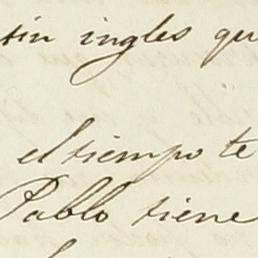 tin ingles qu
el tiempo te
Pablo tiene